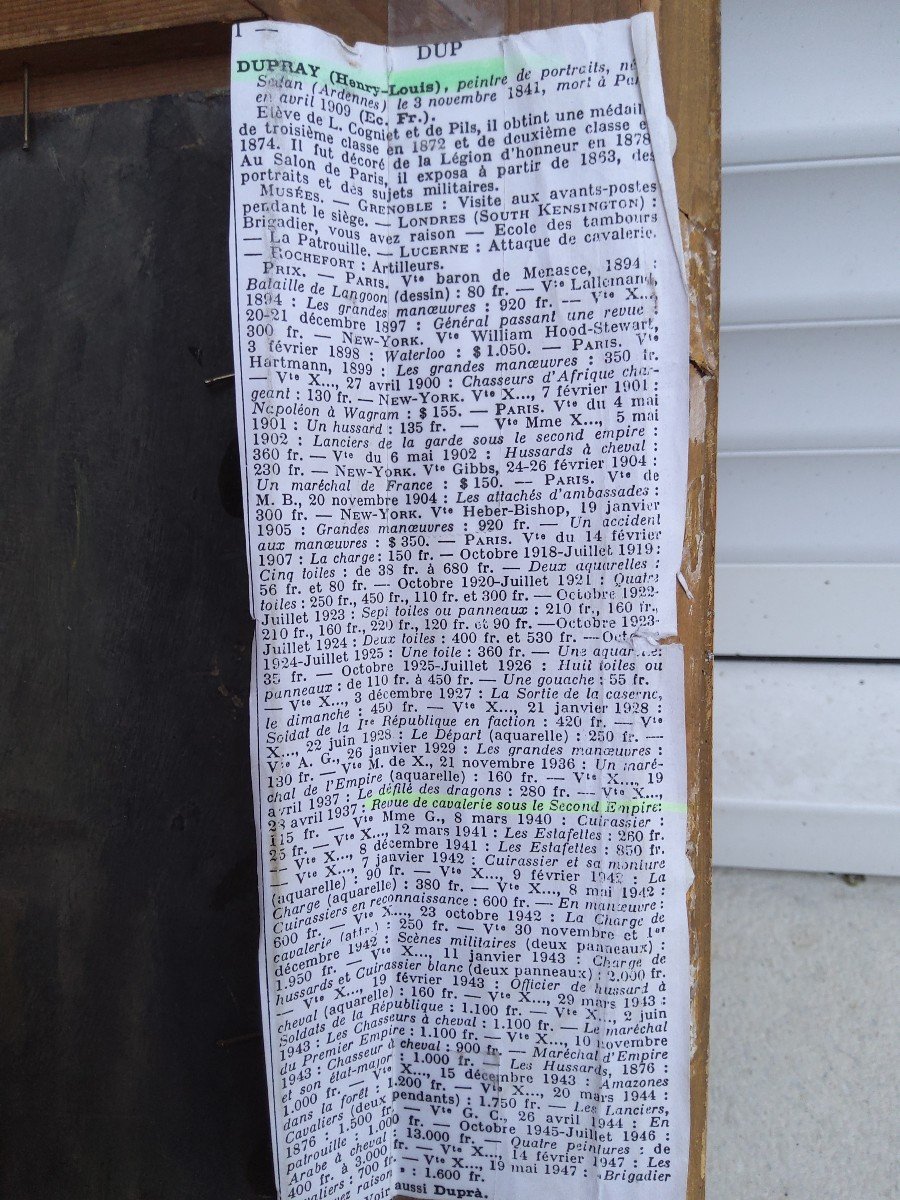 1 —
DUP
DUPRAY (Henry-Louis), peintre de portraits, né
Sedan (Ardennes) le 3 novembre 1841, mort à
en avril 1909 (Ec. Fr.).
Elève de L. Cogniet et de Pils, il obtint une médail
de troisième classe en 1872 et de deuxième classe e
1874. Il fut décoré de la Légion d'honneur en 1878
Au Salon de Paris, il exposa à partir de 1863, des
portraits et des sujets militaires.
MUSÉES. — GRENOBLE : Visite aux avants-postes
pendant le siège. — LONDRES (SOUTH KENSINGTON) :
Brigadier, vous avez raison — Ecole des tambours
— La Patrouille. — LUCERNE : Attaque de cavalerie.
— ROCHEFORT : Artilleurs.
PRIX. — PARIS. Vte baron de Menasce, 1894 :
Bataille de Langoon (dessin) : 80 fr. — Vte Lallemand,
1894 : Les grandes manœuvres : 920 fr. — Vte X...,
20-21 décembre 1897 : Général passant une revue :
300 fr. — NEW-YORK. Vte William Hood-Stewart,
3 février 1898 : Waterloo : $ 1.050. — PARIS. Vte
Hartmann, 1899 : Les grandes manœuvres : 350 fr.
— Vte X..., 27 avril 1900 : Chasseurs d'Afrique char-
geant : 130 fr. — NEW-YORK. Vte X..., 7 février 1901 :
Napoléon à Wagram : $ 155. — PARIS. Vte du 4 mai
1901 : Un hussard : 135 fr. — Vte Mme X..., 5 mai
1902 : Lanciers de la garde sous le second empire :
360 fr. — Vte du 6 mai 1902 : Hussards à cheval :
230 fr. — NEW-YORK. Vte Gibbs, 24-26 février 1904 :
Un maréchal de France : $ 150. — PARIS. Vte de
M. B., 20 novembre 1904 : Les attachés d'ambassades :
300 fr. — NEW-YORK. Vte Heber-Bishop, 19 janvier
1905 : Grandes manœuvres : 920 fr. — Un accident
aux manœuvres : $ 350. — PARIS. Vte du 14 février
1907 : La charge : 150 fr. — Octobre 1918-Juillet 1919 :
Cinq toiles : de 38 fr. à 680 fr. — Deux aquarelles :
56 fr. et 80 fr. — Octobre 1920-Juillet 1921 : Quatre
toiles : 250 fr., 450 fr., 110 fr. et 300 fr. — Octobre 1922-
Juillet 1923 : Sept toiles ou panneaux : 210 fr., 160 fr.,
210 fr., 160 fr., 220 fr., 120 fr. et 90 fr. — Octobre 1923-
Juillet 1924 : Deux toiles : 400 fr. et 530 fr. —
1924-Juillet 1925 : Une toile : 360 fr. — Une aquarelle :
35 fr. — Octobre 1925-Juillet 1926 : Huit toiles ou
panneaux : de 110 fr. à 450 fr. — Une gouache : 55 fr.
— Vte X..., 3 décembre 1927 : La Sortie de la caserne,
le dimanche : 450 fr. — Vte X..., 21 janvier 1928 :
Soldat de la Ire République en faction : 420 fr. — Vte
X..., 22 juin 1928 : Le Départ (aquarelle) : 250 fr. —
Vte A. G., 26 janvier 1929 : Les grandes manœuvres :
130 fr. — Vte M. de X., 21 novembre 1936 : Un maré-
chal de l'Empire (aquarelle) : 160 fr. — Vte X..., 19
avril 1937 : Le défilé des dragons : 280 fr. — Vte X...,
28 avril 1937 : Revue de cavalerie sous le Second Empire :
115 fr. — Vte Mme G., 8 mars 1940 : Cuirassier :
25 fr. — Vte X..., 12 mars 1941 : Les Estafettes : 260 fr.
— Vte X..., 8 décembre 1941 : Les Estafettes : 850 fr.
— Vte X..., 7 janvier 1942 : Cuirassier et sa monture
(aquarelle) : 90 fr. — Vte X..., 9 février 1942 : La
Charge (aquarelle) : 380 fr. — Vte X..., 8 mai 1942 :
Cuirassiers en reconnaissance : 600 fr. — En manœuvre :
600 fr. — Vte X..., 23 octobre 1942 : La Charge de
cavalerie (attr.) : 250 fr. — Vte 30 novembre et 1er
décembre 1942 : Scènes militaires (deux panneaux) :
1.950 fr. — Vte X..., 11 janvier 1943 : Charge de
hussards et Cuirassier blanc (deux panneaux) : 2.000 fr.
— Vte X..., 19 février 1943 : Officier de hussard à
cheval (aquarelle) : 160 fr. — Vte X..., 29 mars 1943 :
Soldats de la République : 1.100 fr. — Vte X..., 2 juin
1943 : Les Chasseurs à cheval : 1.100 fr. — Le maréchal
du Premier Empire : 1.100 fr. — Vte X..., 10 novembre
1943 : Chasseur à cheval : 900 fr. — Maréchal d'Empire
et son état-major : 1.000 fr. — Les Hussards, 1876 :
1.000 fr. — Vte X..., 15 décembre 1943 : Amazones
dans la forêt : 1.200 fr. — Vte X..., 20 mars 1944 :
Cavaliers (deux pendants) : 1.750 fr. — Les Lanciers,
1876 : 1.500 fr. — Vte G. C., 26 avril 1944 : En
patrouille : 1.000 fr. — Octobre 1945-Juillet 1946 :
Arabe à cheval : 13.000 fr. — Quatre peintures : de
400 fr. à 3.000 fr. — Vte X..., 14 février 1947 : Les
valiers : 700 fr. — Vte X..., 19 mai 1947 : Brigadier
vez raison : 1.600 fr.
Voir aussi Duprà.